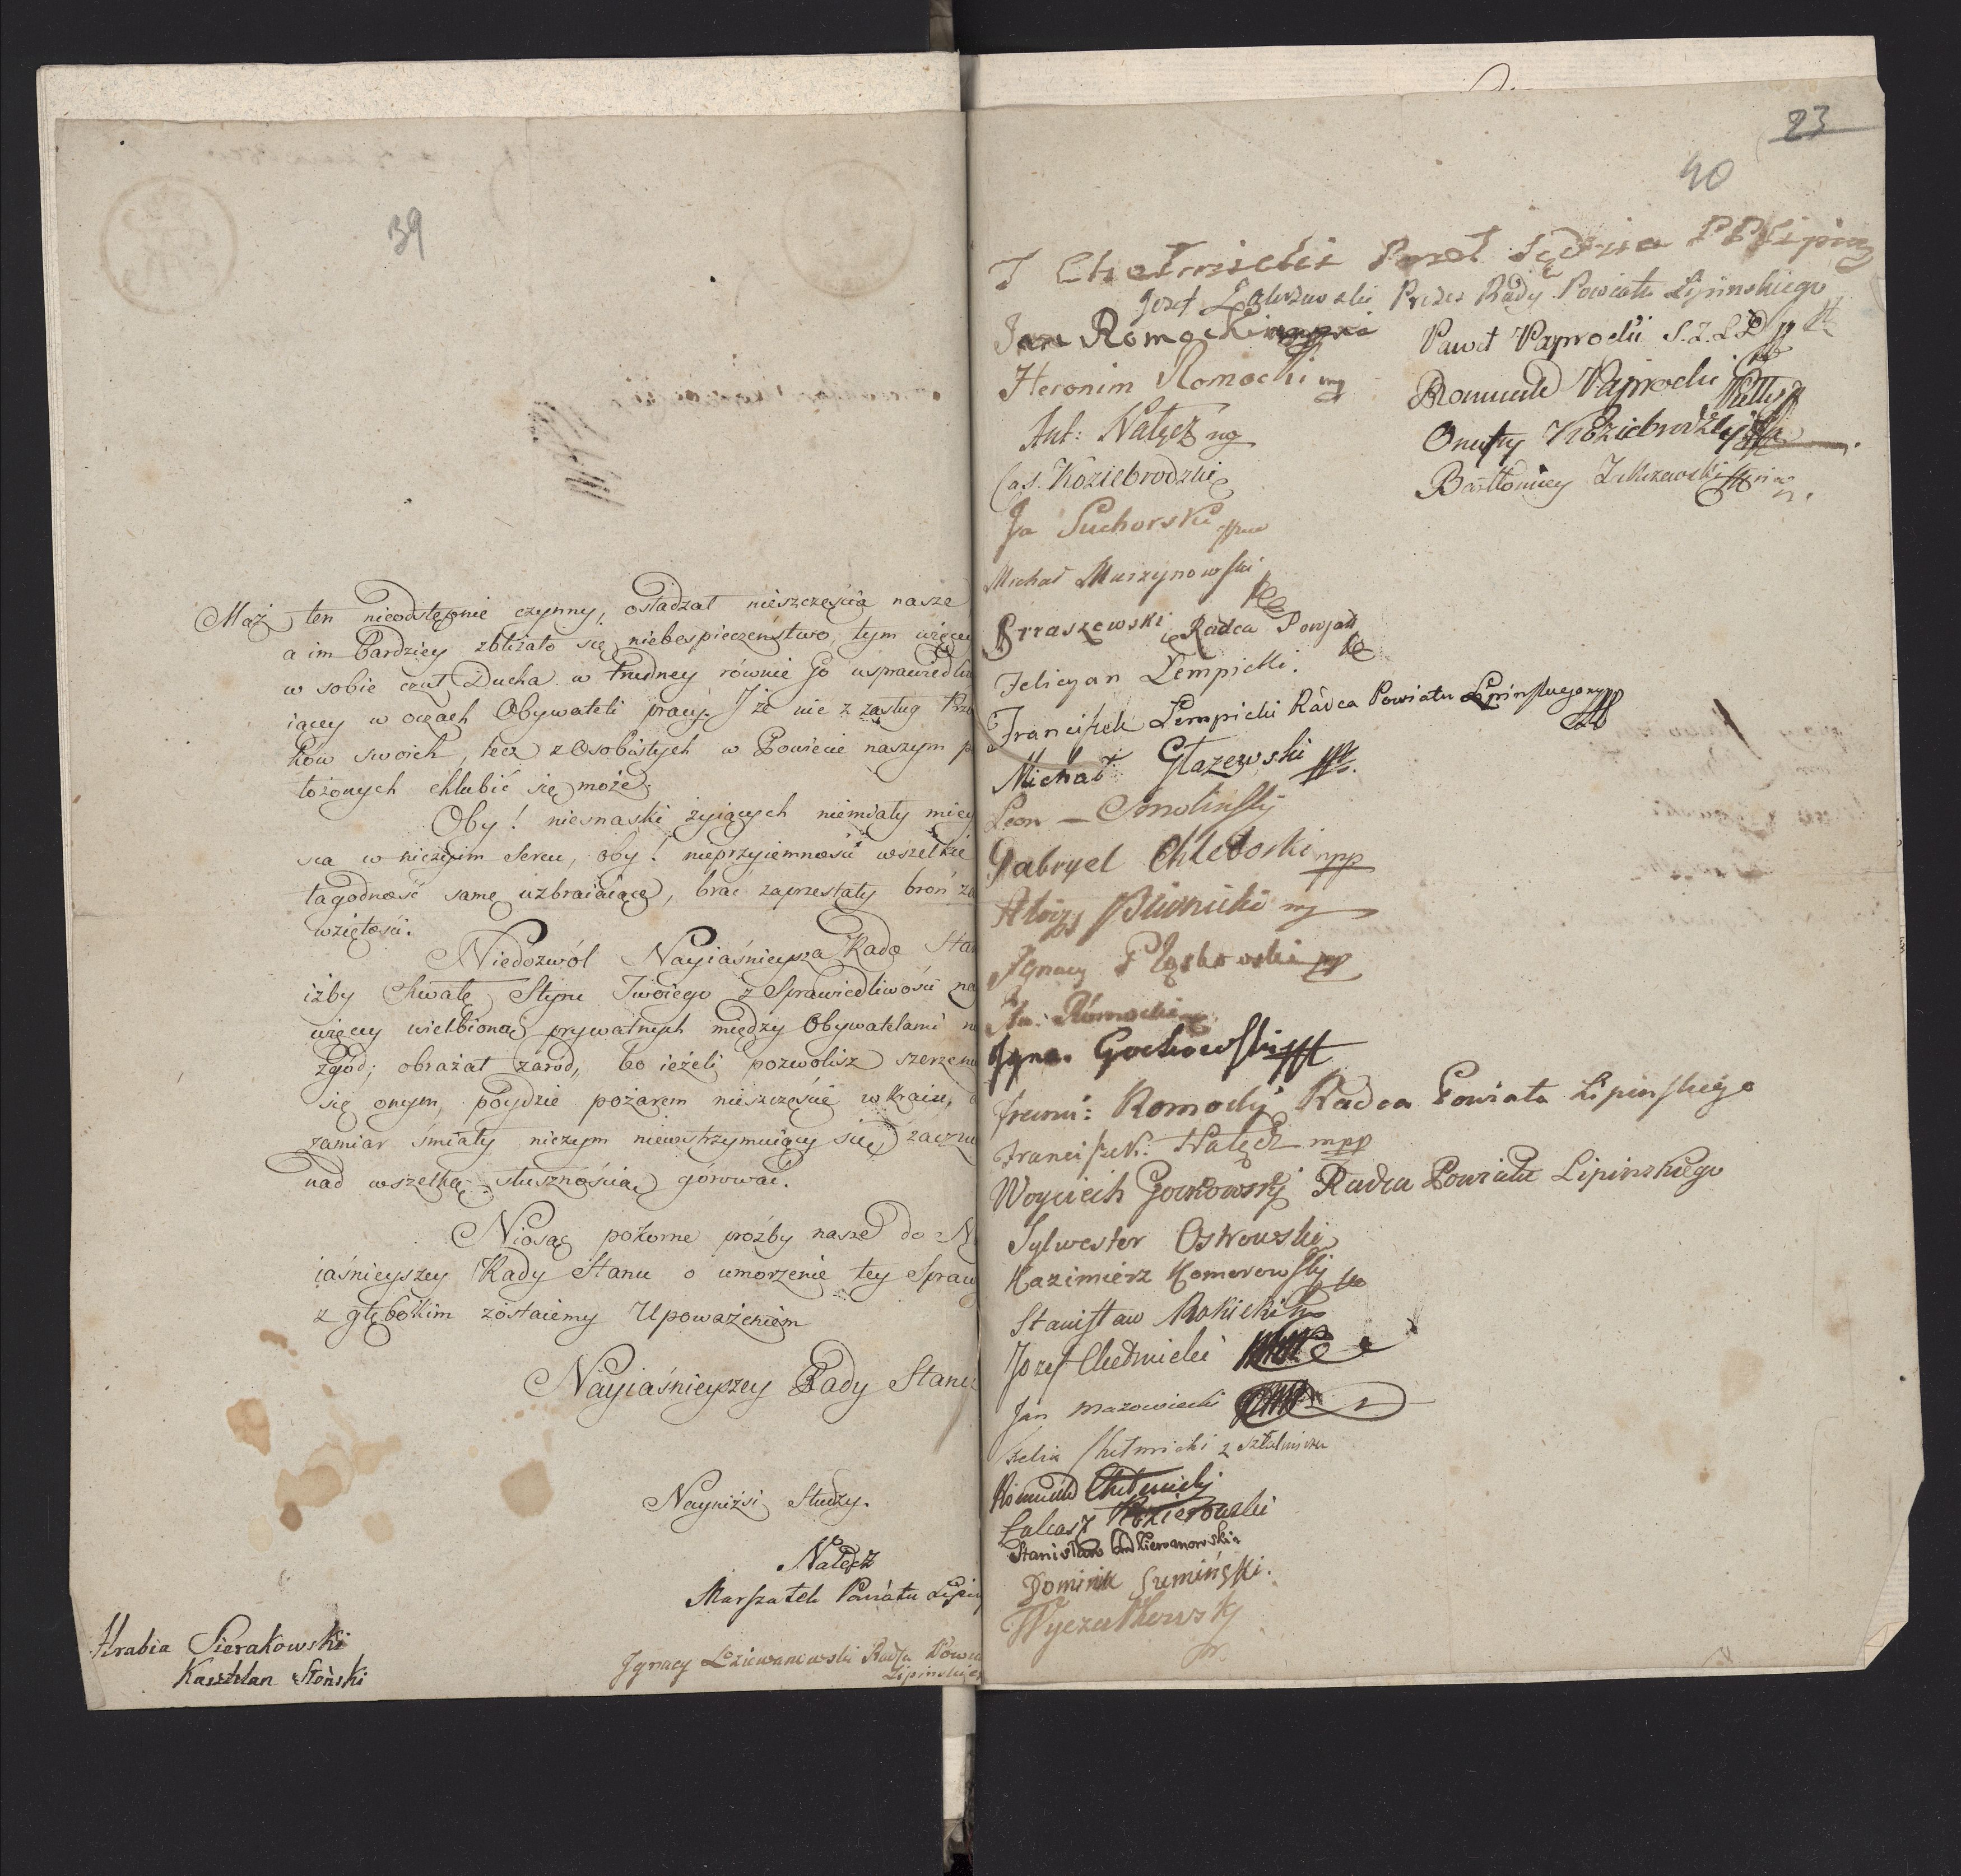 39
Mąż ten nieodstępnie czynny, osładzał nieszczęścia nasze
a im bardziey zbliżało się niebespieczenstwo, tym więcey
w sobie czuł Ducha w trudney równie Go usprawiedli
iącey w oczach Obywateli pracy. I że nie z zasług Prz
ków swoich, lecz z Osobistych w Powiecie naszym p
łożonych chlubić się może.
Oby! niesnaski żyiących niemiały miey
sca w niczyim Sercu, oby! nieprzyiemności wszelkie
łagodność samę uzbraiaiące, brać zaprzestały broń za
wziętości.
Niedozwól Nayiaśnieysza Rado Stan
iżby Chwałę Steru Twoiego z Sprawiedliwości na
więcey wielbioną, prywatnych między Obywatelami n
zgód, obrażał zaród, bo ieżeli pozwolisz szerzeni
się onym, póydzie pożarem nieszczęście w Kraiu,
zamiar śmiały niczym niewstrzymuiący się, zaczn
nad wszelką słusznością górować.
Niosąc pokorne proźby nasze do N
iaśnieyszey Rady Stanu o umorzenie tey Spraw
z głębokim zostaiemy Upoważeniem
Nayiaśnieyszey Rady Stanu
Nayniżsi Słudzy.
Nałęcz
Marszałek Powiatu Lipin
Hrabia Sierakowski
Kasztelan Słoński
Ignacy Dziewanowski Radca Powia
Lipinskie
23
40
J Chełmicki Paweł Sędzia PPLipiny
Jozef Zakrzewski Prezes Rady Powiatu Lipinskiego
Jan Romocki
Paweł Paprocki S.Z.L.P
Heronim Romocki mp
Romuald Paprocki
Ant: Nałęcz mp
Onufry Koziebrodzky
Cas. Koziebrodzki
Bartłomiey Zakrzewski
Ja Suchorski
Michał Muszynowski
Prraszewski Radca Powiatu
Felicyan Łempicki.
Franciszek Łempicki Radca Powiatu Lipinskiego mpp
Michał Głazewski
Leon Smolinsky
Gabryel Chleboski mpp
Aloizy Bliznicki mp
Ignacy Pląskowski mp
Ja: Rómocki
Igna. Gockowski
Romocky Radca Powiatu Lipinskiego
Franciszek: Nałęcz mpp
Woyciech Gockowsky Radca Powiatu Lipinskiego
Sylwester Ostrowski
Kazimierz Komorowsky
Stanisław Rokicki
Jozef Chełmicki
Jan Mazowiecki
Felix Chełmicki z
Romuald Chełmicky
Łukasz Kozierowski
Stanisław Dziewanowski
Dominik Sumiński.
Wyczałkowsky